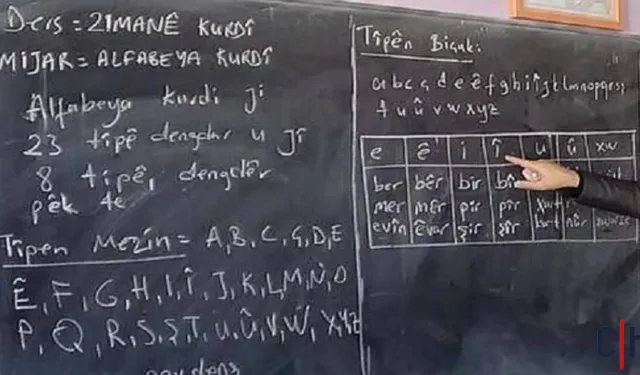 Ders = ZIMANÊ KURDÎ
MIJAR = ALFABEYA KURDÎ
Alfabeya Kurdi Ji
23 tîpê dengdar u Ji
8 tîpê, dengdêr
pêk tê
Tîpen Mezin = A, B, C, Ç, D, E
Ê, F, G, H, I, Î, J, K, L, M, N, O
P, Q, R, S, Ş, T, U, Û, V, W, X, Y, Z
Tîpên Biçuk:
a b c ç d e ê f g h i î j k l m n o p q r s ş
t u û v w x y z
e ê i î u û xw
ber bêr bir bîr
mer mêr pir pîr
evîn êvar şir şîr nûr